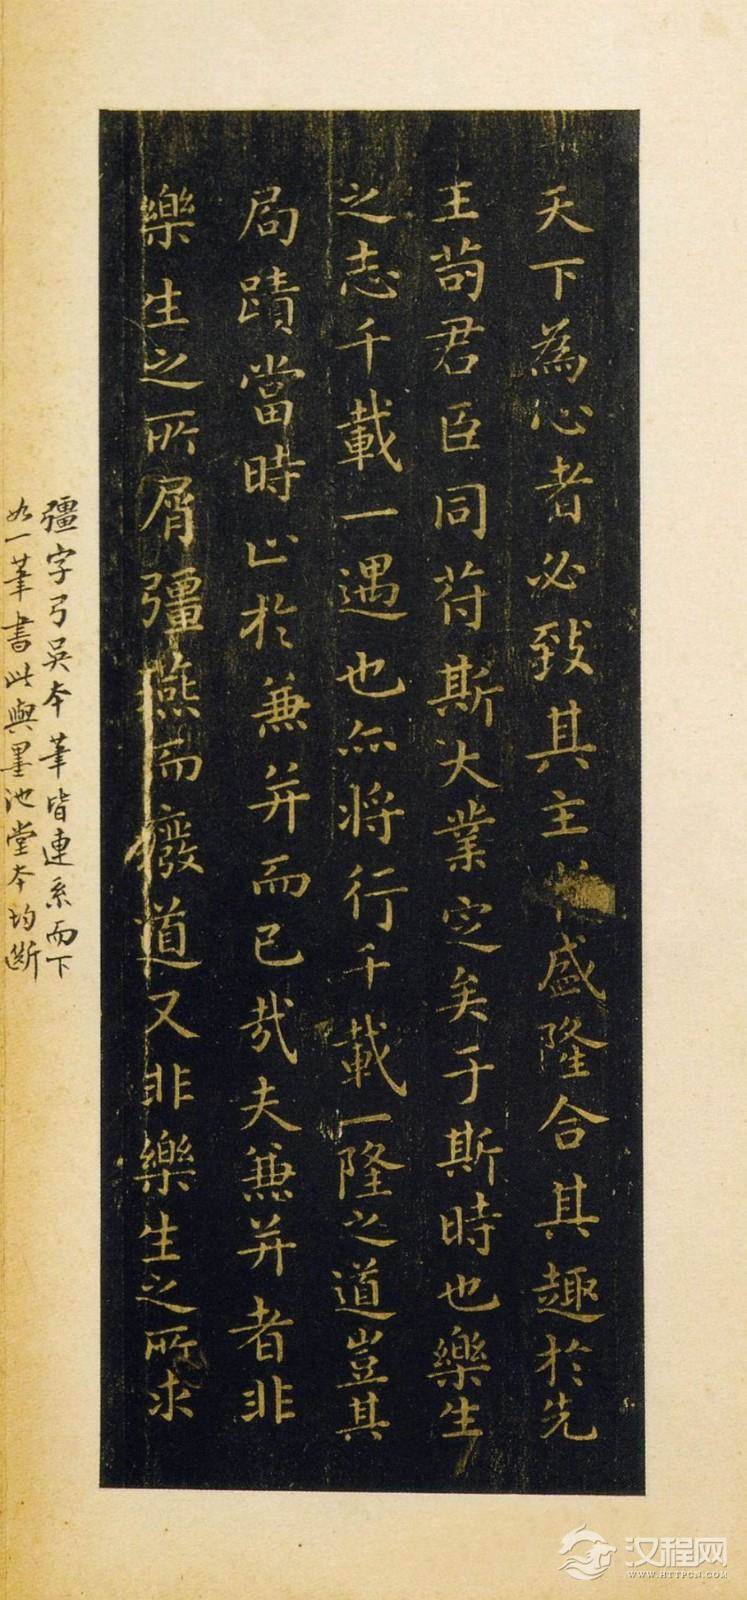 天下為心者必致其主於盛隆合其趣於先
王苟君臣同苻斯大業定矣于斯時也樂生
之志千載一遇也亦將行千載一隆之道豈其
局蹟當時止於兼并而已哉夫兼并者非
樂生之所屑彊燕而廢道又非樂生之所求
彊字弓吳本筆皆連系而下
如一筆書此與墨池堂本均斷
汉程网
WWW.HTTPCN.COM